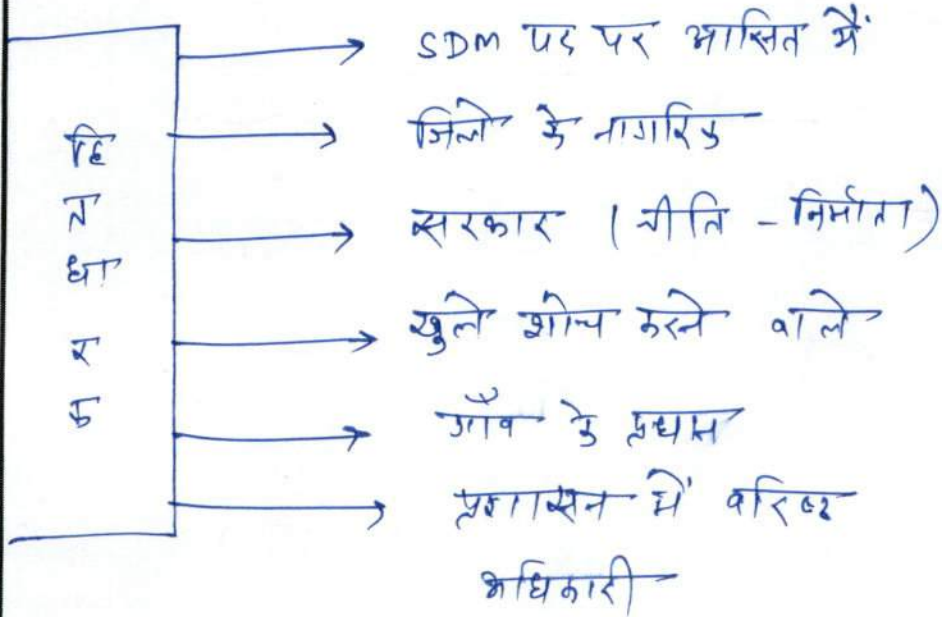 हितधारक
SDM पद पर आसित मैं
जिले के नागरिक
सरकार (नीति - निर्माता)
खुले शौच करने वाले
गाँव के प्रधान
प्रशासन में वरिष्ठ
अधिकारी